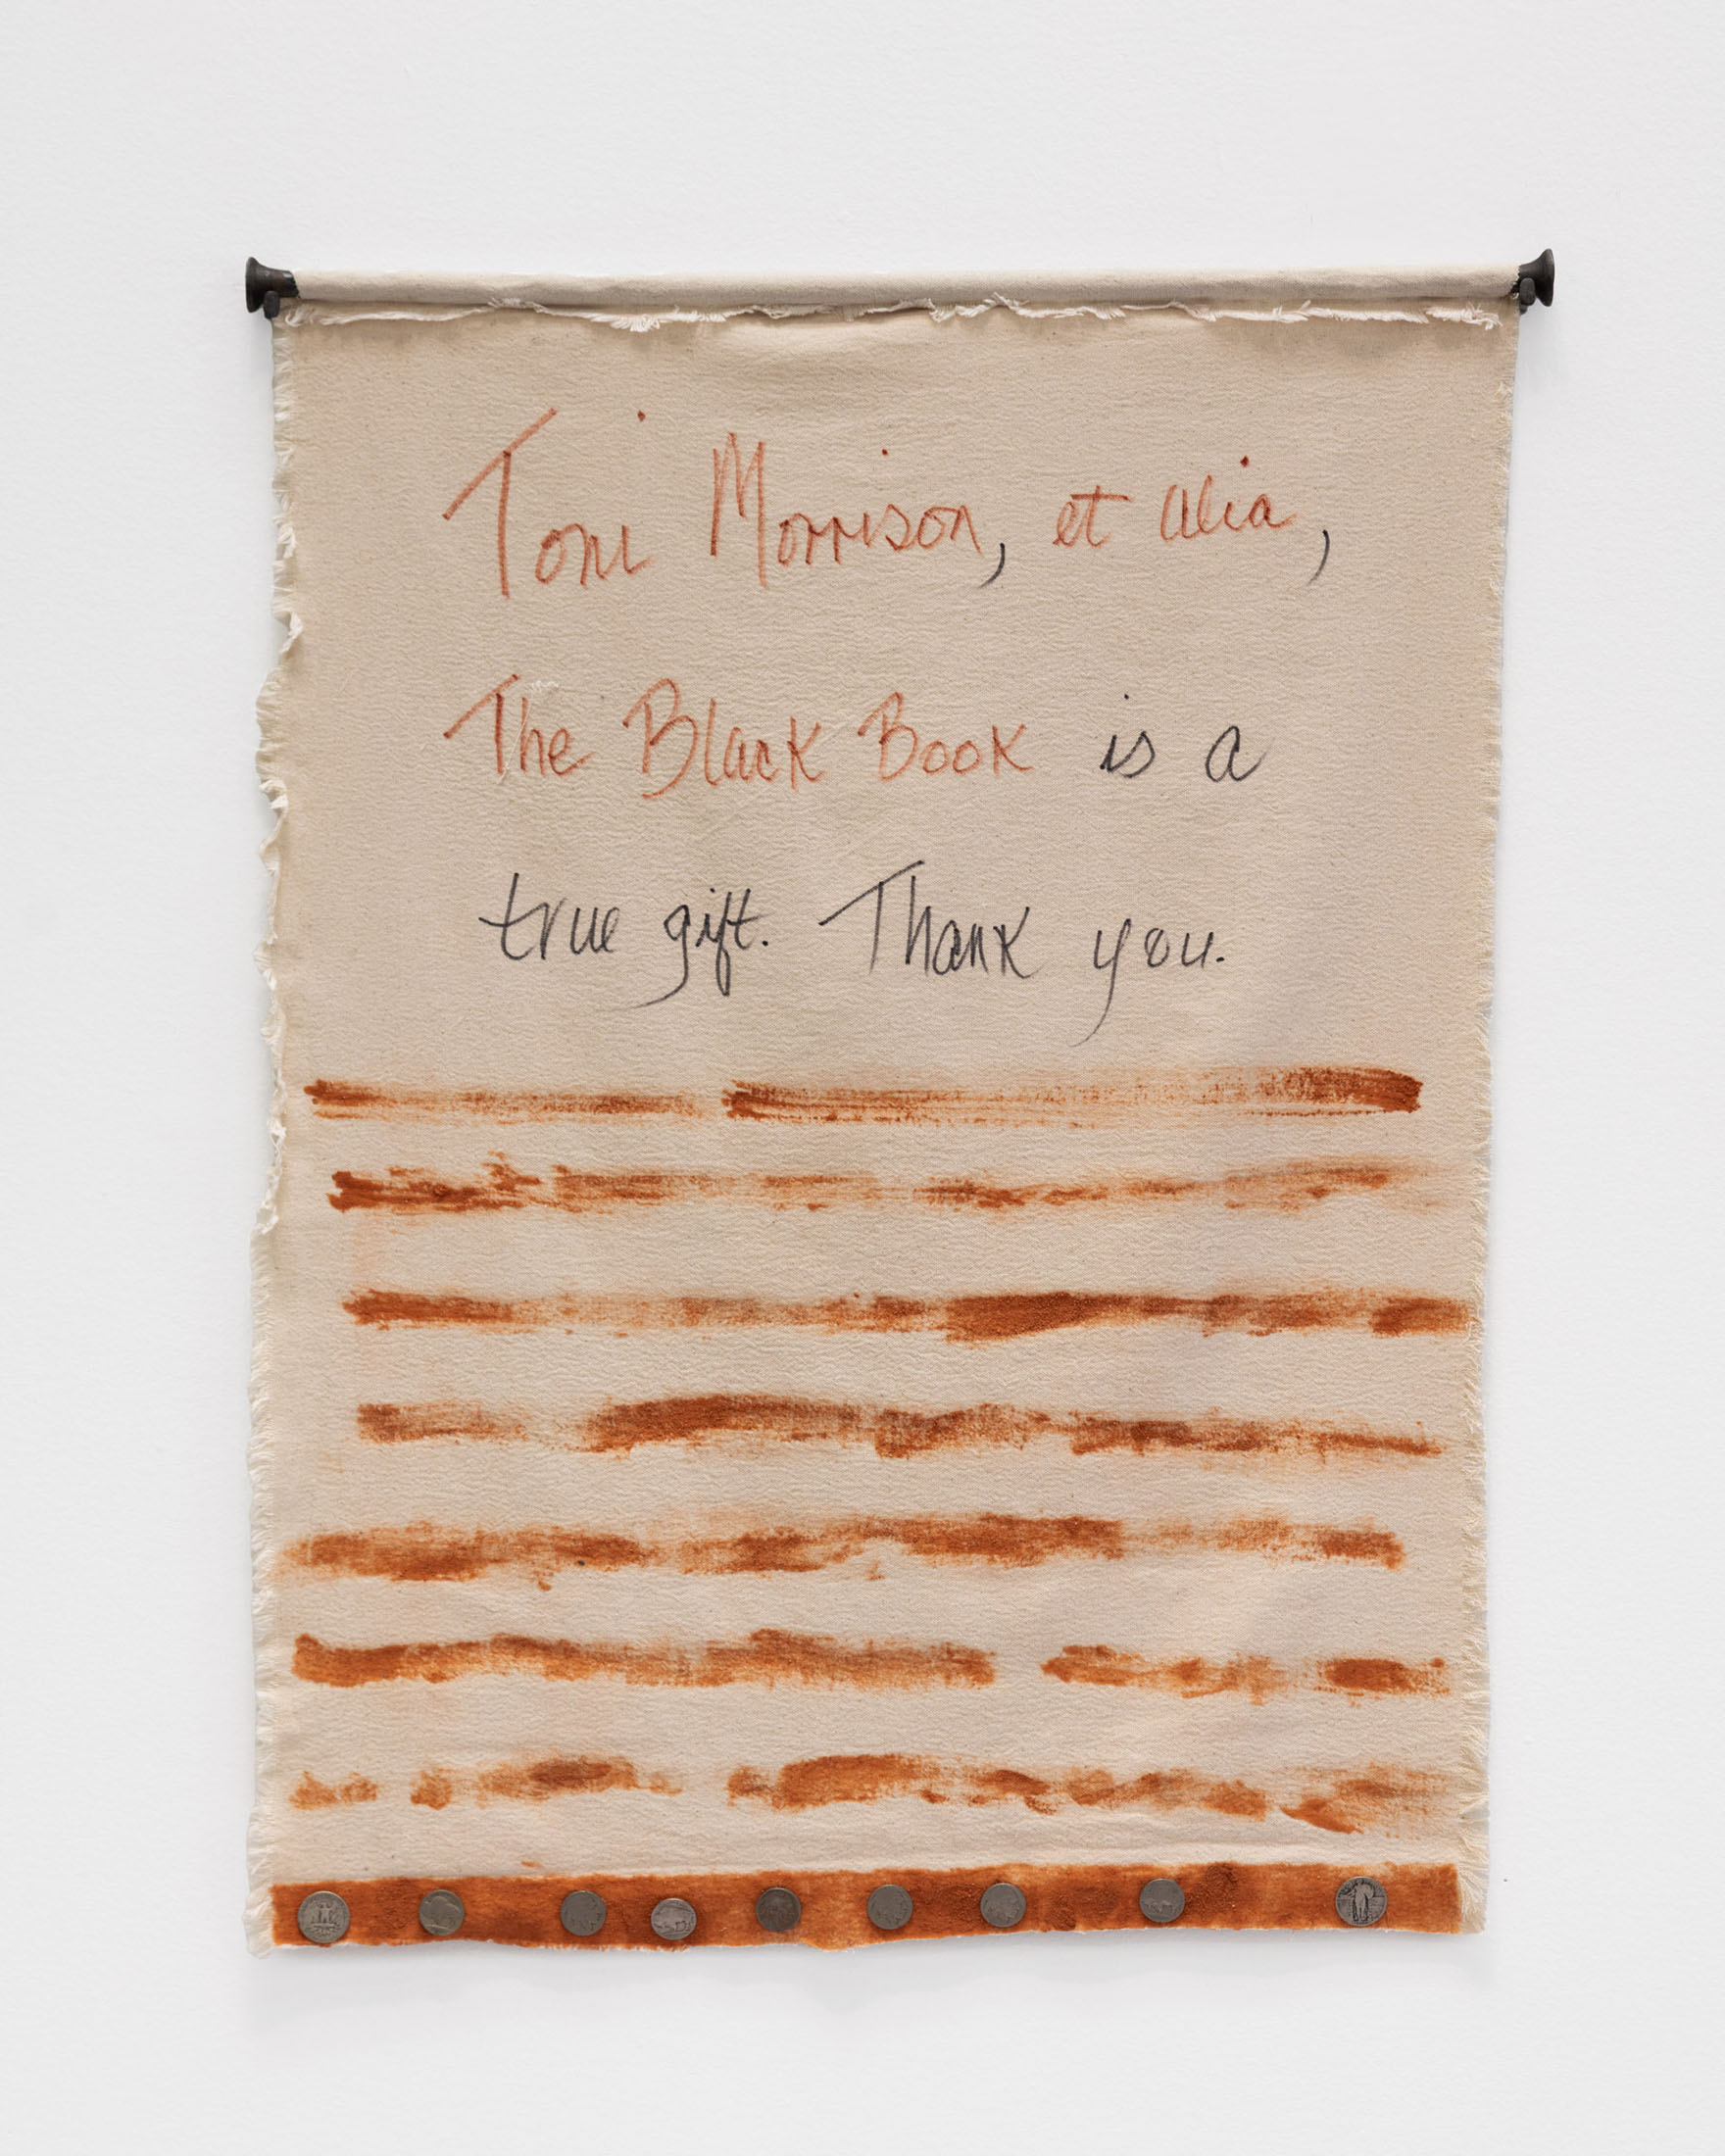 Toni Morrison, et alia,
The Black Book is a
true gift. Thank you.